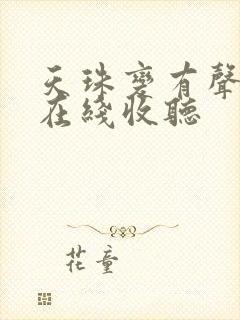 天珠變有聲
在綫收聽
花童